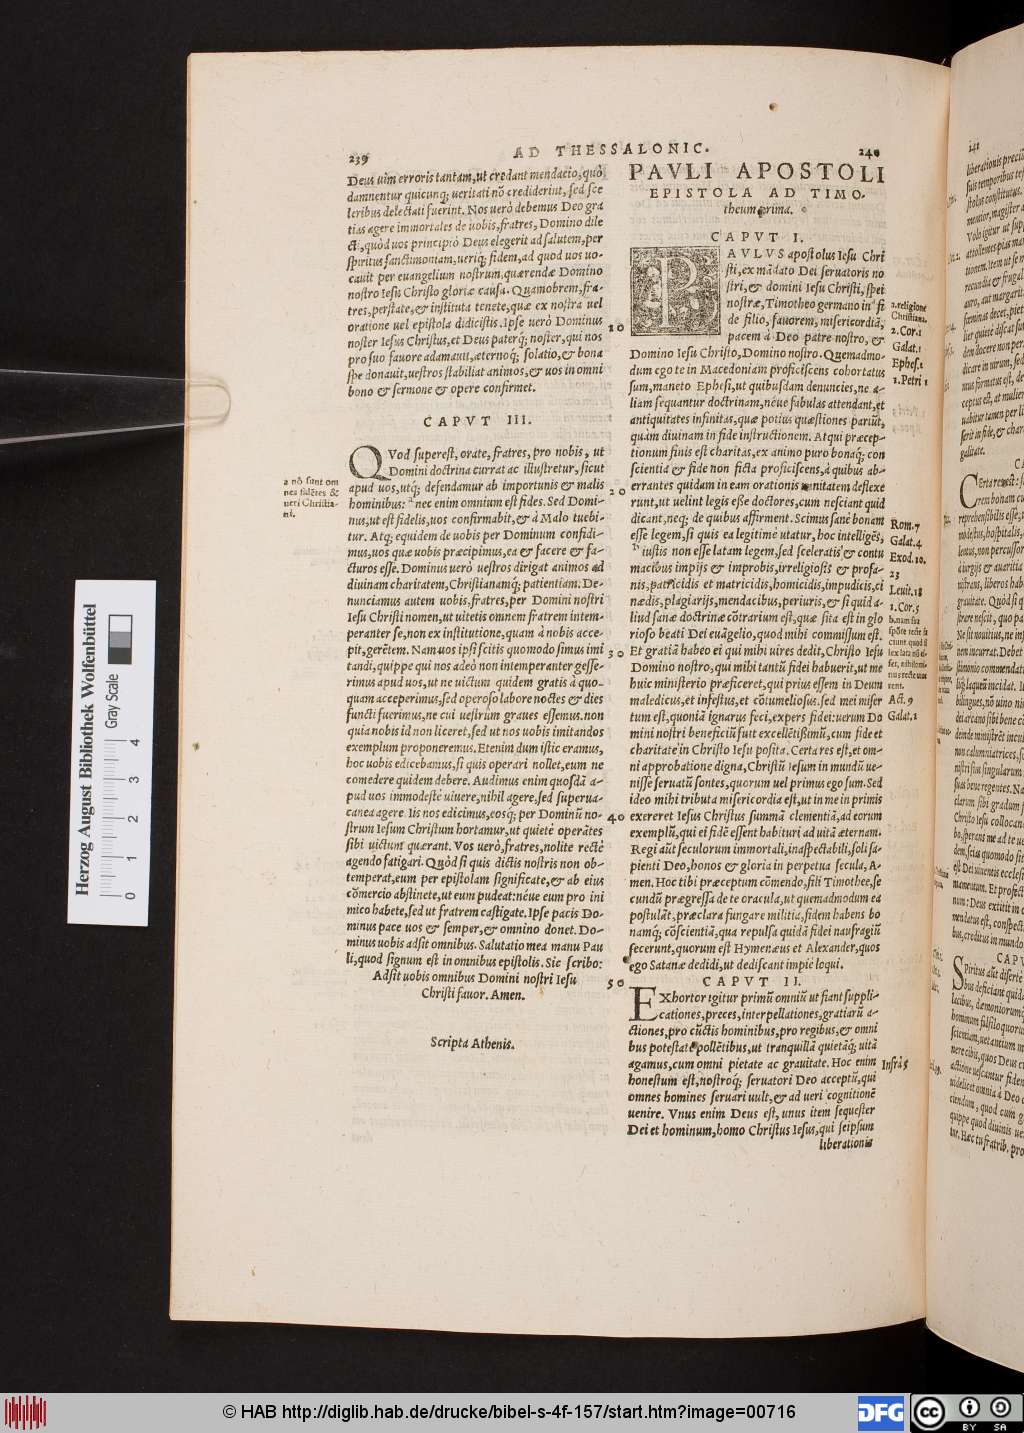 239
AD THESSALONIC.
240
Deus uim erroris tantam, ut credant mendacio, quò
damnentur quicunq; ueritati nõ crediderint, sed sce
leribus delectati fuerint. Nos uerò debemus Deo gra
tias agere immortales de uobis, fratres, Domino dile
cti, quòd uos principiò Deus elegerit ad salutem, per
spiritus sanctimoniam, ueriq; fidem, ad quod uos uo-
cauit per euangelium nostrum, quærendæ Domino
nostro Iesu Christo gloriæ causa. Quamobrem, fra-
tres, perstate, & instituta tenete, quæ ex nostra uel
oratione uel epistola didicistis. Ipse uerò Dominus
noster Iesus Christus, et Deus paterq; noster, qui nos
pro suo fauore adamauit, æternoq; solatio, & bona
spe donauit, uestros stabiliat animos, & uos in omni
bono & sermone & opere confirmet.
CAPVT III.
QVod superest, orate, fratres, pro nobis, ut
Domini doctrina currat ac illustretur, sicut
apud uos, utq; defendamur ab importunis & malis
hominibus: a nec enim omnium est fides. Sed Domi-
nus, ut est fidelis, uos confirmabit, & à Malo tuebi-
tur. Atq; equidem de uobis per Dominum confidi-
mus, uos quæ uobis præcipimus, ea & facere & fa-
cturos esse. Dominus uerò uestros dirigat animos ad
diuinam charitatem, Christianamq; patientiam. De-
nunciamus autem uobis, fratres, per Domini nostri
Iesu Christi nomen, ut uitetis omnem fratrem intem-
peranter se, non ex institutione, quam à nobis acce-
pit, gerẽtem. Nam uos ipsi scitis quomodo simus imi
tandi, quippe qui nos adeò non intemperanter gesse-
rimus apud uos, ut ne uictum quidem gratis à quo-
quam acceperimus, sed operoso labore noctes & dies
functi fuerimus, ne cui uestrûm graues essemus. non
quia nobis id non liceret, sed ut nos uobis imitandos
exemplum proponeremus. Etenim dum istic eramus,
hoc uobis edicebamus, si quis operari nollet, eum ne
comedere quidem debere. Audimus enim quosdã a-
pud uos immodestè uiuere, nihil agere, sed superua-
canea agere. Iis nos edicimus, eosq; per Dominũ no-
strum Iesum Christum hortamur, ut quietè operãtes
sibi uictum quærant. Vos uerò, fratres, nolite rectè
agendo fatigari. Quòd si quis dictis nostris non ob-
temperat, eum per epistolam significate, & ab eius
cõmercio abstinete, ut eum pudeat: néue eum pro ini
mico habete, sed ut fratrem castigate. Ipse pacis Do-
minus pace uos & semper, & omnino donet. Do-
minus uobis adsit omnibus. Salutatio mea manu Pau
li, quod signum est in omnibus epistolis. Sic scribo:
Adsit uobis omnibus Domini nostri Iesu
Christi fauor. Amen.
Scripta Athenis.
a nõ sunt om
nes fidẽtes &
ueri Christia-
ni.
10
20
30
40
50
PAVLI APOSTOLI
EPISTOLA AD TIMO-
theum prima.
CAPVT I.
PAVLVS apostolus Iesu Chri
sti, ex mãdato Dei seruatoris no
stri, & domini Iesu Christi, spei
nostræ, Timotheo germano in a fi
de filio, fauorem, misericordiã,
pacem à Deo patre nostro, &
Domino Iesu Christo, Domino nostro. Quemadmo-
dum ego te in Macedoniam proficiscens cohortatus
sum, maneto Ephesi, ut quibusdam denuncies, ne a-
liam sequantur doctrinam, néue fabulas attendant, et
antiquitates infinitas, quæ potius quæstiones pariũt,
quàm diuinam in fide instructionem. Atqui præcep-
tionum finis est charitas, ex animo puro bonaq; con
scientia & fide non ficta proficiscens, à quibus ab-
errantes quidam in eam orationis uanitatem deflexe
runt, ut uelint legis esse doctores, cum nesciant quid
dicant, neq; de quibus affirment. Scimus sanè bonam
esse legem, si quis ea legitimè utatur, hoc intelligẽs,
b iustis non esse latam legem, sed sceleratis & contu
macibus impijs & improbis, irreligiosis & profa-
nis, patricidis et matricidis, homicidis, impudicis, ci
nædis, plagiarijs, mendacibus, periuris, & si quid a-
liud sanæ doctrinæ cõtrarium est, quæ sita est in glo
rioso beati Dei euãgelio, quod mihi commissum est.
Et gratiã habeo ei qui mihi uires dedit, Christo Iesu
Domino nostro, qui mihi tantũ fidei habuerit, ut me
huic ministerio præficeret, qui prius essem in Deum
maledicus, et infestus, et cõtumeliosus. sed mei miser
tum est, quoniã ignarus feci, expers fidei: uerum Do
mini nostri beneficiũ fuit excellẽtißimũ, cum fide et
charitate in Christo Iesu posita. Certa res est, et om-
ni approbatione digna, Christũ Iesum in mundũ ue-
nisse seruatũ sontes, quorum uel primus ego sum. Sed
ideo mihi tributa misericordia est, ut in me in primis
exereret Iesus Christus summã clementiã, ad eorum
exemplũ, qui ei fidẽ essent habituri ad uitã æternam.
Regi aũt seculorum immortali, inaspectabili, soli sa-
pienti Deo, honos & gloria in perpetua secula, A-
men. Hoc tibi præceptum cõmendo, fili Timothee, se
cundũ prægressa de te oracula, ut quemadmodum ea
postulãt, præclara fungare militia, fidem habens bo
namq; cõscientiã, qua repulsa quidã fidei naufragiũ
fecerunt, quorum est Hymenæus et Alexander, quos
ego Satanæ dedidi, ut dediscant impiè loqui.
CAPVT II.
EXhortor igitur primũ omniũ ut fiant suppli-
cationes, preces, interpellationes, gratiarũ a-
ctiones, pro cũctis hominibus, pro regibus, & omni
bus potestate pollẽtibus, ut tranquillã quietãq; uitã
agamus, cum omni pietate ac grauitate. Hoc enim
honestum est, nostroq; seruatori Deo acceptũ, qui
omnes homines seruari uult, & ad ueri cognitionẽ
uenire. Vnus enim Deus est, unus item sequester
Dei et hominum, homo Christus Iesus, qui seipsum
liberationis
a. religione
Christiana.
2. Cor. 1
Galat. 1
Ephes. 1
1. Petri 1
Rom. 7
Galat. 4
Exod. 20.
23
Leuit. 18
1. Cor. 5
Act. 9
Galat. 1
Infrà 5
241
Herzog August Bibliothek Wolfenbüttel
Gray Scale
0 1 2 3 4
© HAB http://diglib.hab.de/drucke/bibel-s-4f-157/start.htm?image=00716
DFG
cc
BY SA